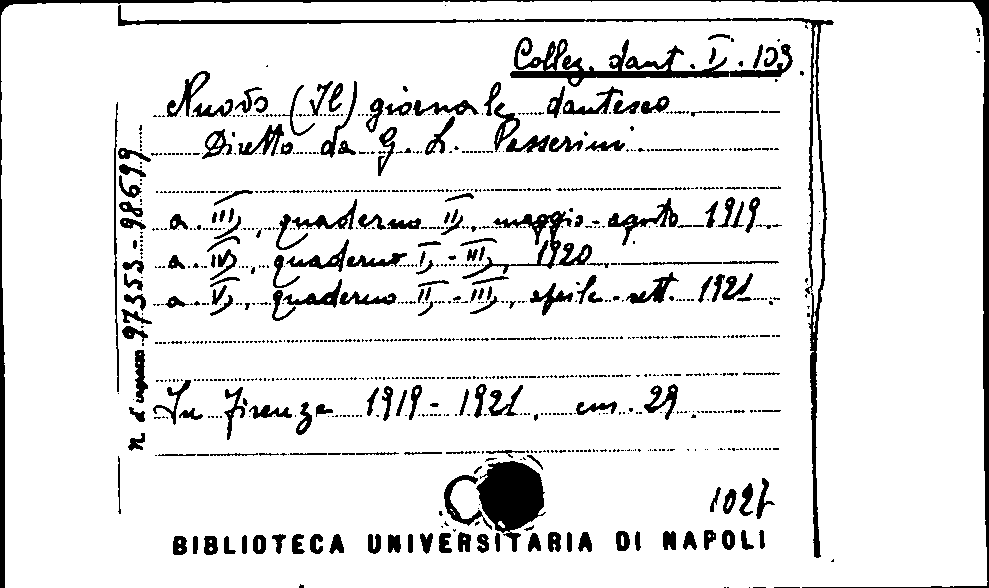 Collez. dant. I. 103.
Nuovo (Il) giornale dantesco.
Diretto da G. L. Passerini.
a. III, quaderno II, maggio-agosto 1919.
a. IV, quaderno I, - III, 1920.
a. V, quaderno II, - III, aprile-sett. 1921.
In Firenze 1919-1921, cm. 29.
n. d'ingresso 97353-98699
1027
BIBLIOTECA UNIVERSITARIA DI NAPOLI